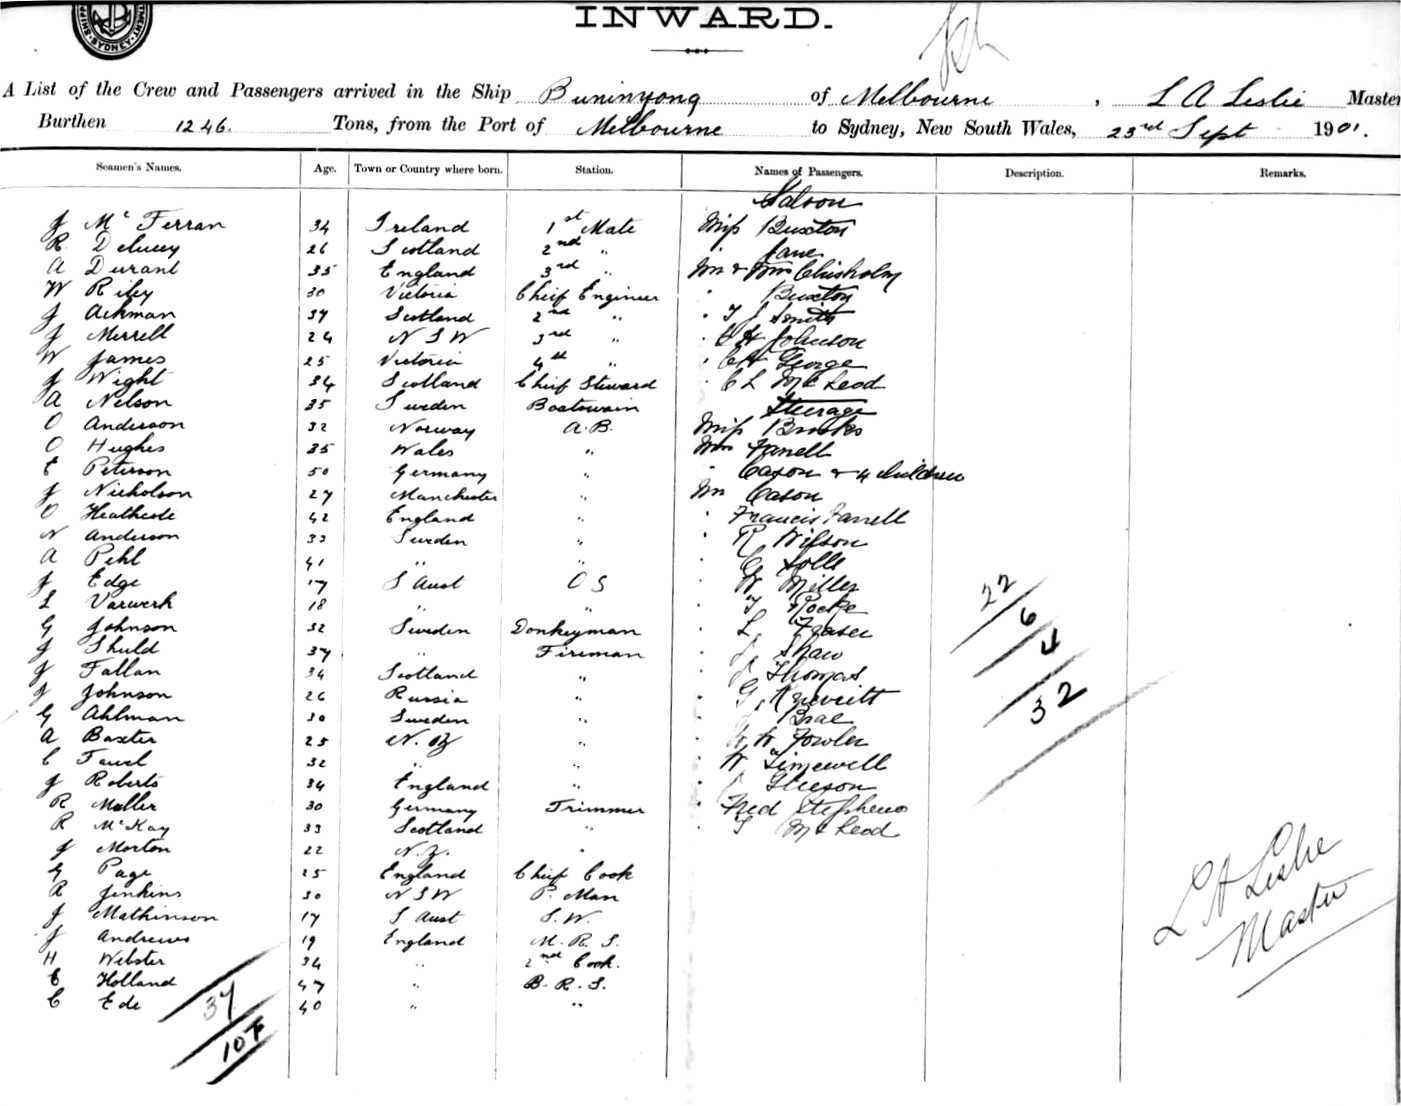 SYDNEY
INWARD.
A List of the Crew and Passengers arrived in the Ship Buninyong of Melbourne, L A Leslie Master
Burthen 1246. Tons, from the Port of Melbourne to Sydney, New South Wales, 23rd Sept 1901.
Seamen's Names. Age. Town or Country where born. Station. Names of Passengers. Description. Remarks.
Saloon
J McFerran 34 Ireland 1st Mate Miss Buxton
R Delucey 26 Scotland 2nd " " Jane
A Durant 35 England 3rd " Mr & Mrs Chisholm
W Riley 30 Victoria Chief Engineer " Buxton
J Ackman 37 Scotland 2nd " " T J Smith
J Merrell 24 N S W 3rd " " C H Johnson
W James 25 Victoria 4th " " C H George
J Wight 34 Scotland Chief Steward " C L McLeod
A Nelson 35 Sweden Boatswain Steerage
O Anderson 32 Norway A.B. Miss Brooks
O Hughes 35 Wales " Mrs Farrell
E Peterson 50 Germany " " Cason & 4 children
J Nicholson 27 Manchester " Mr Cason
O Heathcote 42 England " " Francis Farrell
N Anderson 33 Sweden " " R Wilson
A Pehl 41 " " " G Solle
J Edge 17 S Aust O S " W Miller
L Varwerk 18 " " " T Rocke
G Johnson 32 Sweden Donkeyman " L Fraser
J Shuld 37 " Fireman " Shaw
J Fallan 34 Scotland " " Thomas
J Johnson 26 Russia " " G
G Ahlman 30 Sweden " " Brae
A Baxter 25 N. Z " " W Fowler
C Fawel 32 " " " W Timewell
J Roberts 34 England " " Gleeson
R Muller 30 Germany Trimmer " Fred Stephens
R McKay 33 Scotland " " T McLeod
J Morton 22 N.Z. "
G Page 25 England Chief Cook
R Jenkins 30 N S W P. Man
J Mathinson 17 S Aust S.W.
J Andrews 19 England M. R. S.
H Webster 34 " 2nd Cook.
E Holland 47 " B. R. S.
C Ede 40 " "
37
10 F
22
6
4
32
L A Leslie
Master